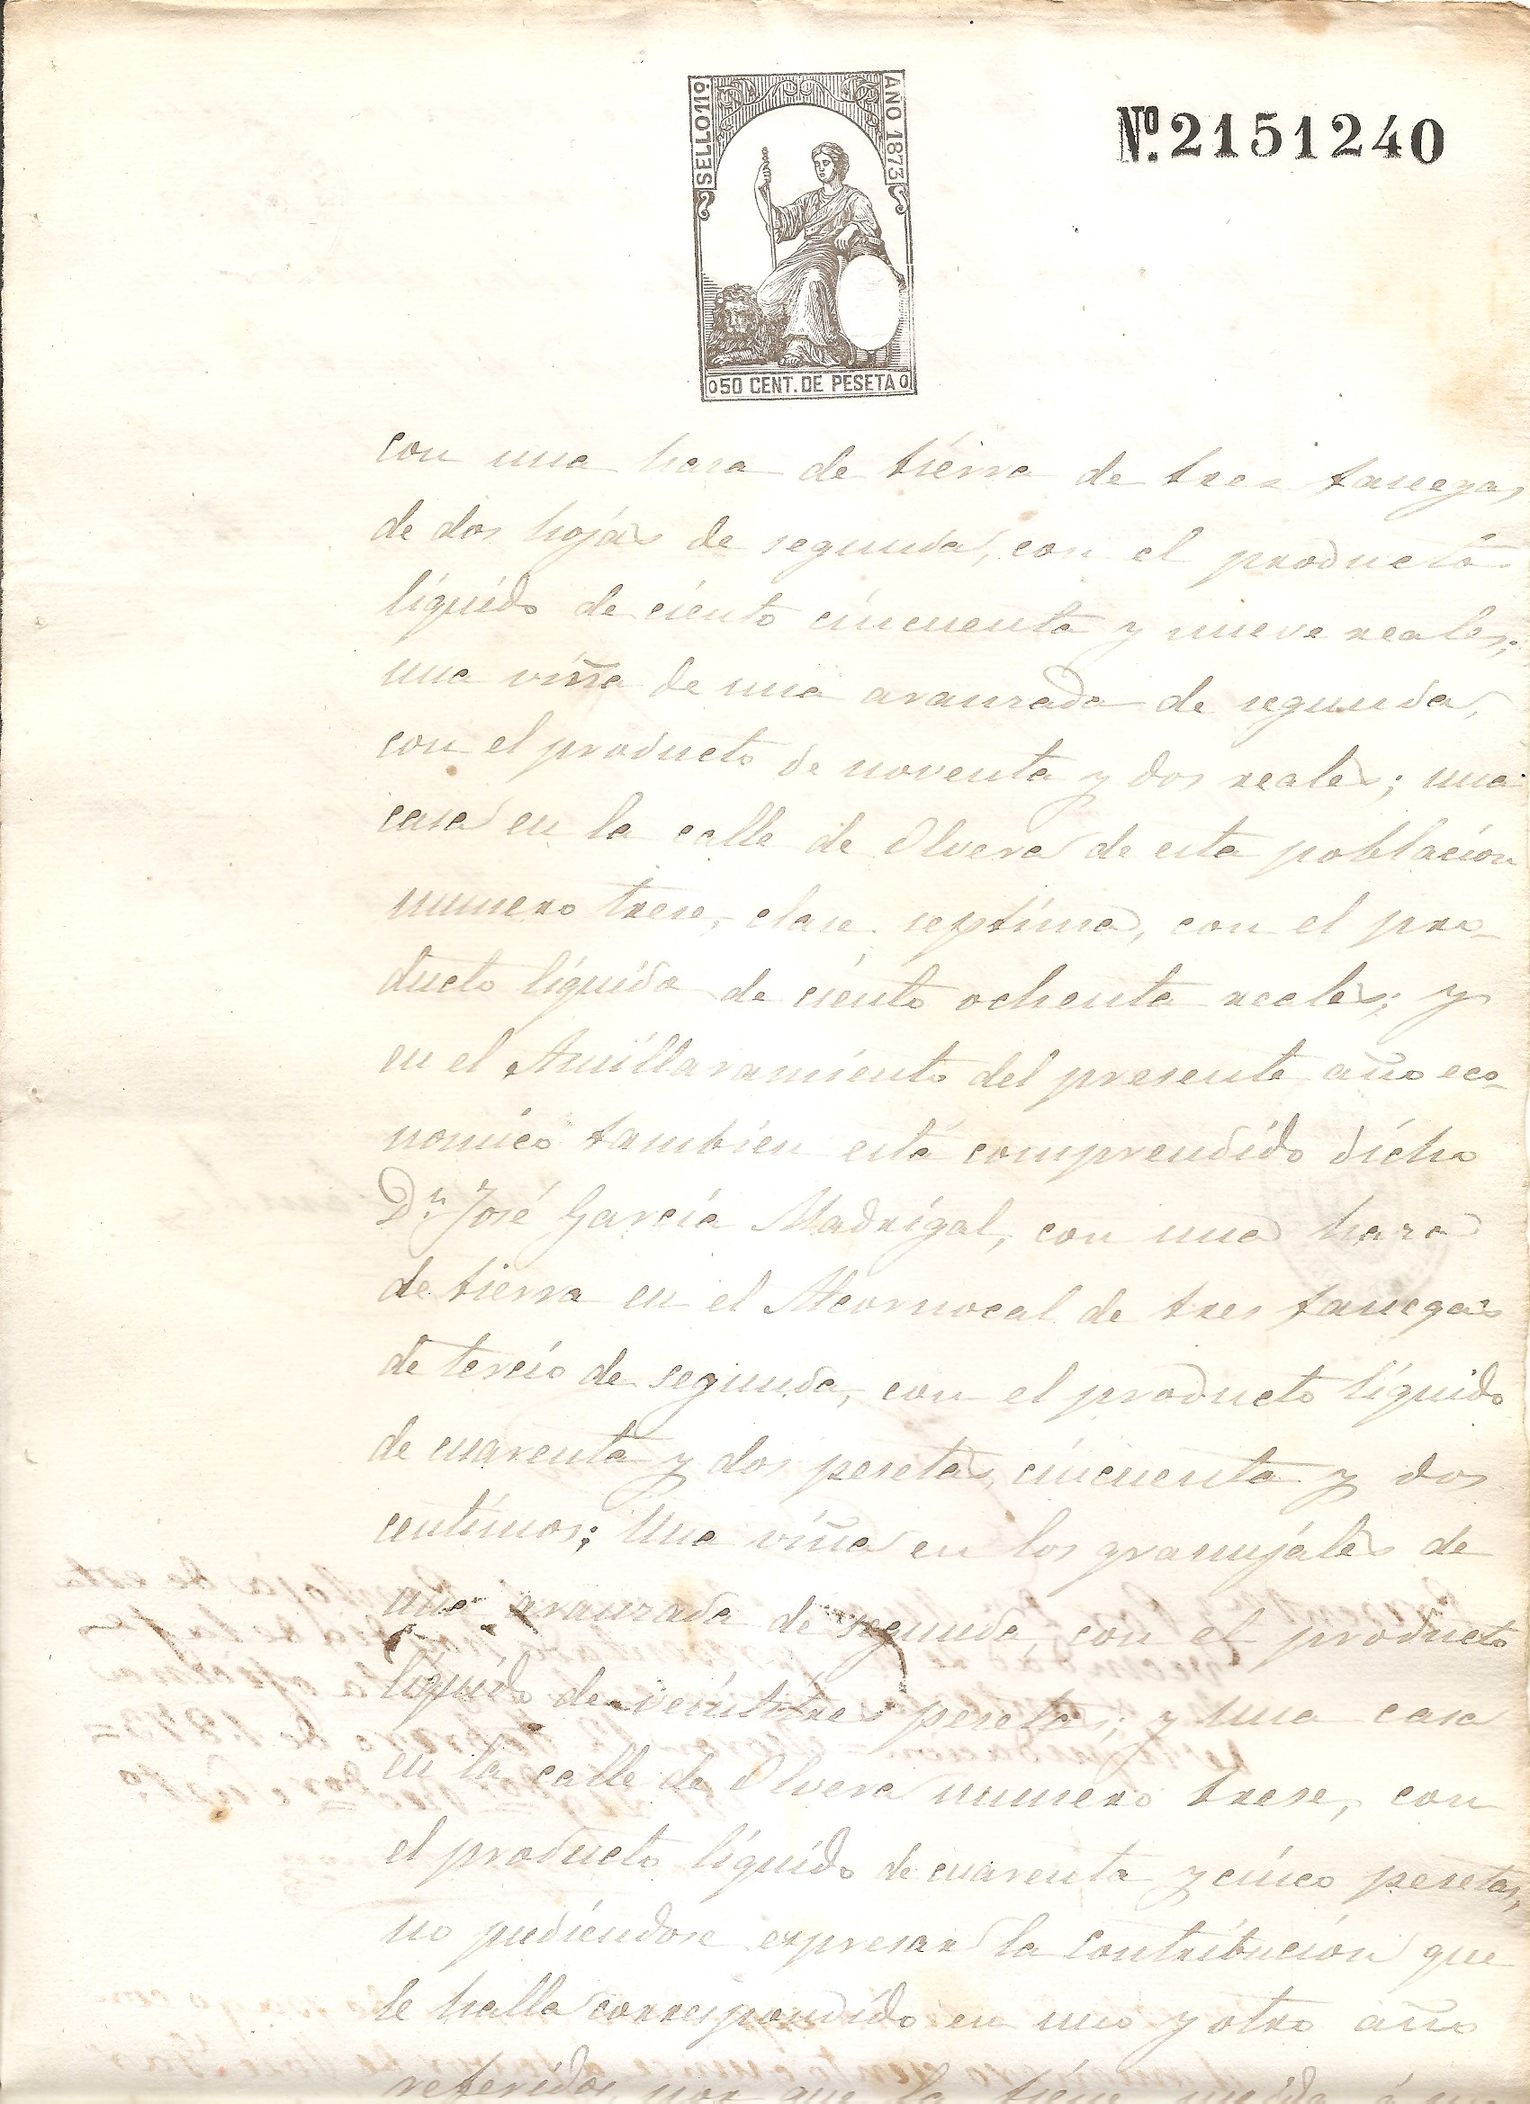 SELLO 11º
AÑO 1873
Nº. 2151240
50 CENT. DE PESETA
con una haza de tierra de tres fanegas
de dos hojas de segunda, con el producto
líquido de ciento cincuenta y nueve reales;
una viña de una aranzada de segunda,
con el producto de noventa y dos reales; una
casa en la calle de Olvera de esta poblacion
numero trese, clase septima, con el pro-
ducto líquido de ciento ochenta reales; y
en el Amillaramiento del presente año eco-
nomico tambien está comprendido dicho
Dn. José García Madrigal, con una haza
de tierra en el Alcornocal de tres fanegas
de tercio de segunda, con el producto líquido
de cuarenta y dos pesetas, cincuenta y dos
centimos; Una viña en los granujáles de
una aranzada de segunda, con el producto
líquido de veintitres pesetas; y una casa
en la calle de Olvera numero trese, con
el producto líquido de cuarenta y cinco pesetas,
no pudiendose expresar la contribucion que
le halla correspondido en uno y otro año
referidos, por que la tiene unida á